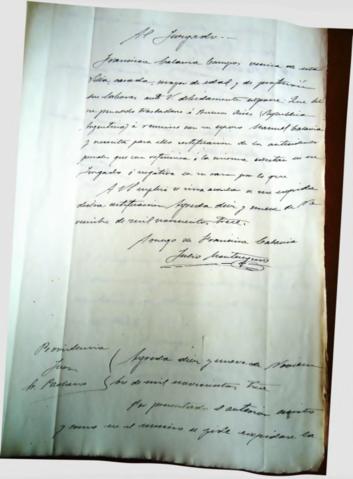 Al Juzgado.-
Francisca Calavia Campos, vecina de esta
Villa, casada, mayor de edad, y de profesión
sus labores, ante V. debidamente expone: Que
precisando trasladarse á Buenos Aires (República
Argentina) á reunirse con su esposo Manuel Calavia
y necesita para ello certificación de los antecedentes
penales que con referencia á la misma existan en su
Juzgado, ó negativa en su caso, por lo que
A V. suplica se sirva acordar se me expida
dicha certificación. Agreda diez y nueve de No-
viembre de mil novecientos trece.
A ruego de Francisca Calavia
Julio
Providencia
Juez
Sr.
Agreda diez y nueve de Noviem
bre de mil novecientos trece
Por presentado el anterior escrito
y como en el mismo se pide expídase la